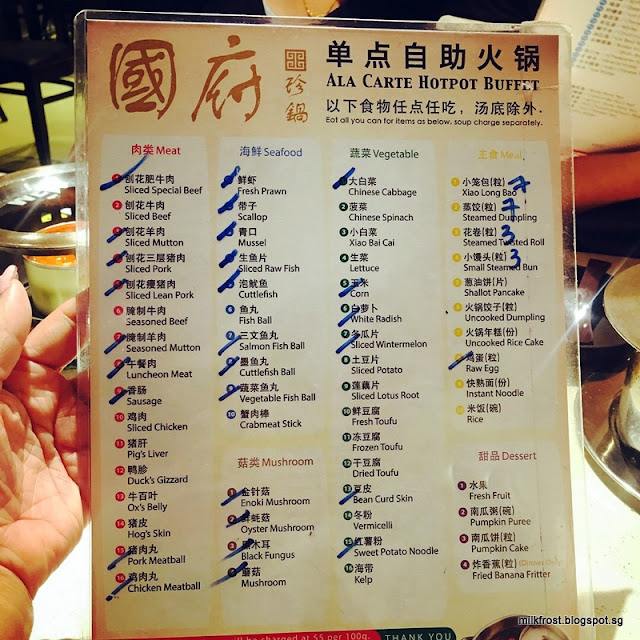 國府
珍鍋
单点自助火锅
ALA CARTE HOTPOT BUFFET
以下食物任点任吃，汤底除外.
Eat all you can for items as below, soup charge separately.
肉类 Meat
1 刨花肥牛肉
Sliced Special Beef
2 刨花牛肉
Sliced Beef
3 刨花羊肉
Sliced Mutton
4 刨花三层猪肉
Sliced Pork
5 刨花瘦猪肉
Sliced Lean Pork
6 腌制牛肉
Seasoned Beef
7 腌制羊肉
Seasoned Mutton
8 午餐肉
Luncheon Meat
9 香肠
Sausage
10 鸡肉
Sliced Chicken
11 猪肝
Pig's Liver
12 鸭胗
Duck's Gizzard
13 牛百叶
Ox's Belly
14 猪皮
Hog's Skin
15 猪肉丸
Pork Meatball
16 鸡肉丸
Chicken Meatball
海鲜 Seafood
1 鲜虾
Fresh Prawn
2 带子
Scallop
3 青口
Mussel
4 生鱼片
Sliced Raw Fish
5 泡鱿鱼
Cuttlefish
6 鱼丸
Fish Ball
7 三文鱼丸
Salmon Fish Ball
8 墨鱼丸
Cuttlefish Ball
9 蔬菜鱼丸
Vegetable Fish Ball
10 蟹肉棒
Crabmeat Stick
菇类 Mushroom
1 金针菇
Enoki Mushroom
2 鲜蚝菇
Oyster Mushroom
3 黑木耳
Black Fungus
4 蘑菇
Mushroom
蔬菜 Vegetable
1 大白菜
Chinese Cabbage
2 菠菜
Chinese Spinach
3 小白菜
Xiao Bai Cai
4 生菜
Lettuce
5 玉米
Corn
6 白萝卜
White Radish
7 冬瓜片
Sliced Wintermelon
8 土豆片
Sliced Potato
9 莲藕片
Sliced Lotus Root
10 鲜豆腐
Fresh Toufu
11 冻豆腐
Frozen Toufu
12 干豆腐
Dried Toufu
13 豆皮
Bean Curd Skin
14 冬粉
Vermicelli
15 红薯粉
Sweet Potato Noodle
16 海带
Kelp
主食 Meal
1 小笼包(粒) 7
Xiao Long Bao
2 蒸饺(粒) 7
Steamed Dumpling
3 花卷(粒) 3
Steamed Twisted Roll
4 小馒头(粒) 3
Small Steamed Bun
5 葱油饼(片)
Shallot Pancake
6 火锅饺子(粒)
Uncooked Dumpling
7 火锅年糕(份)
Uncooked Rice Cake
8 鸡蛋(粒)
Raw Egg
9 快熟面(份)
Instant Noodle
10 米饭(碗)
Rice
甜品 Dessert
1 水果
Fresh Fruit
2 南瓜粥(碗)
Pumpkin Puree
3 南瓜饼(粒)
Pumpkin Cake
4 炸香蕉(粒) (Dinner Only)
Fried Banana Fritter
will be charged at $5 per 100g.
THANK YOU
milkfrost.blogspot.sg